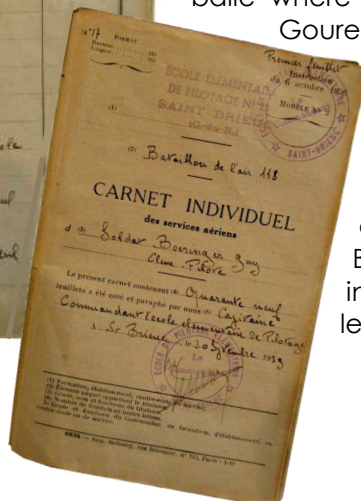 balle where
Goure
N° 17
FORMAT
Hauteur
Largeur
Premier feuillet
Instruction
du 6 octobre
MODÈLE N°
ÉCOLE ÉLÉMENTAIRE
DE PILOTAGE N°
SAINT-BRIEUC
(C.-du-N.)
SAINT-BRIEUC
(1)
(2) Bataillon de l'air 118
CARNET INDIVIDUEL
des services aériens
d (3) Soldat Boeringer Guy
Elève-Pilote
Le présent carnet contenant (4) Quarante neuf
feuillets a été coté et paraphé par nous (5) Capitaine
Commandant l'école élémentaire de Pilotage
A St Brieuc, le 30 Septembre 1939
Le
(1) Formation, établissement, centre
(2) Élément auquel appartient le titulaire.
(3) Grade, nom et fonctions du titulaire.
(4) Nombre de feuillets en toutes lettres.
(5) Grade et fonctions du Commandant de formation, d'établissement, de
centre école ou de service.
E
in
le